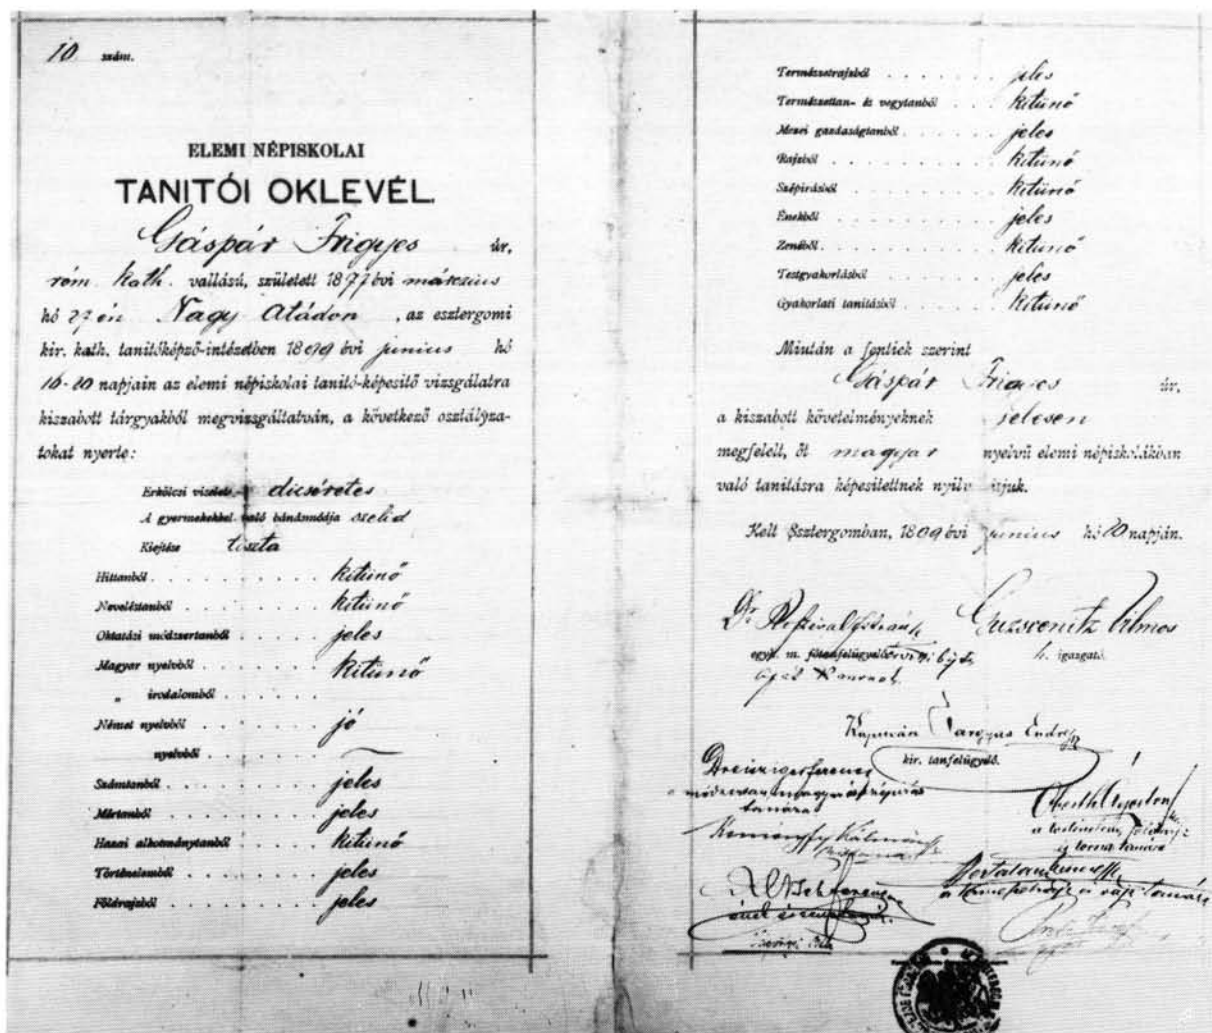 10 szám.
ELEMI NÉPISKOLAI
TANITÓI OKLEVÉL.
Gáspár Frigyes úr,
róm. kath. vallású, született 1877 évi március
hó 27 én Nagy Atádon, az esztergomi
kir. kath. tanitóképző-intézetben 1899 évi junius hó
16-20 napjain az elemi népiskolai tanitó-képesitő vizsgálatra
kiszabott tárgyakból megvizsgáltatván, a következő osztályza-
tokat nyerte:
Erkölcsi viselete dicséretes
A gyermekekkel való bánásmódja szelid
Kiejtése tiszta
Hittanból kitünő
Neveléstanból kitünő
Oktatási módszertanból jeles
Magyar nyelvből kitünő
„ irodalomból
Német nyelvből jó
nyelvből —
Számtanból jeles
Mértanból jeles
Hazai alkotmánytanból kitünő
Történelemből jeles
Földrajzból jeles
Természetrajzból jeles
Természettan- és vegytanból kitünő
Mezei gazdaságtanból jeles
Rajzból kitünő
Szépirásból kitünő
Énekből jeles
Zenéből kitünő
Testgyakorlásból jeles
Gyakorlati tanitásból kitünő
Miután a fentiek szerint
Gáspár Frigyes úr.
a kiszabott követelményeknek jelesen
megfelelt, őt magyar nyelvü elemi népiskolákban
való tanitásra képesitettnek nyilvánitjuk.
Kelt Esztergomban, 1899 évi junius hó 20 napján.
Dr.
Guzsvenitz Vilmos
egyh. m. főtanfelügyelő
h. igazgató.
Vargyas Endre
kir. tanfelügyelő.
Ferenc
tanára
Kálmán
a történelem, földrajz
és torna tanára
ének